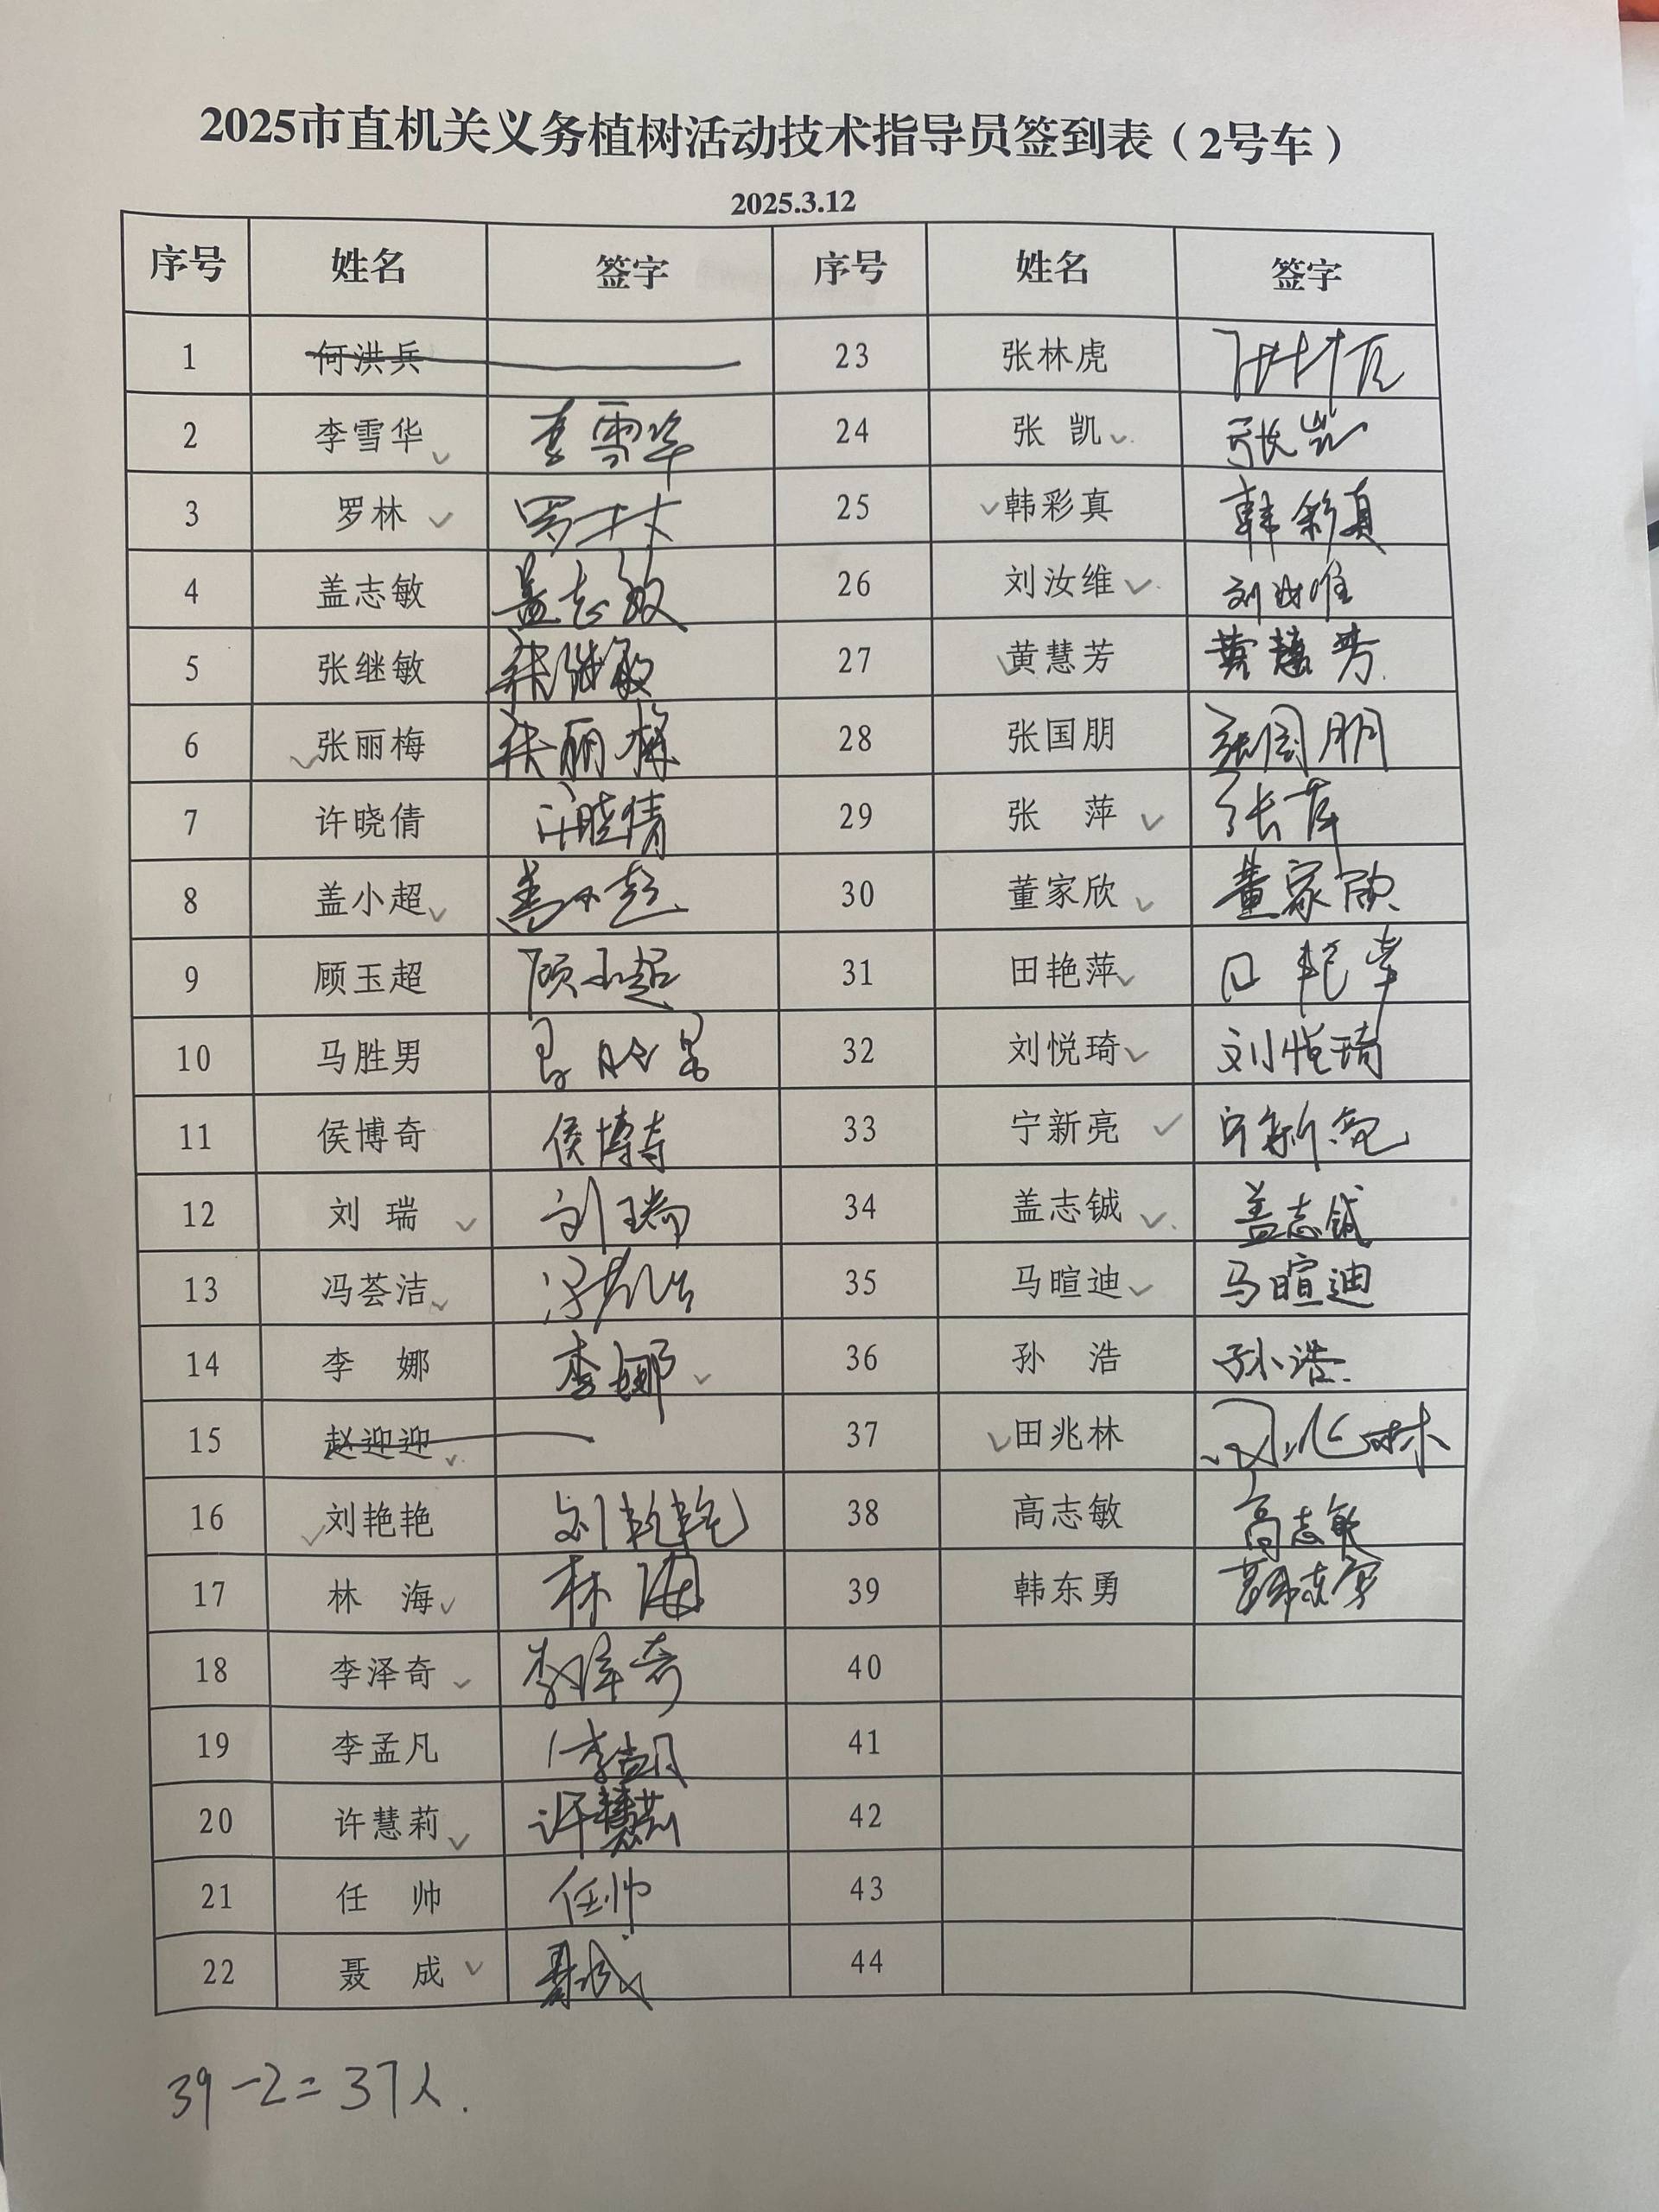 2025市直机关义务植树活动技术指导员签到表（2号车）
2025.3.12
序号 姓名 签字 序号 姓名 签字
1 何洪兵 23 张林虎
2 李雪华 李雪华 24 张 凯 张凯
3 罗林 罗林 25 韩彩真 韩彩真
4 盖志敏 盖志敏 26 刘汝维 刘汝维
5 张继敏 张继敏 27 黄慧芳 黄慧芳
6 张丽梅 张丽梅 28 张国朋 张国朋
7 许晓倩 许晓倩 29 张 萍 张萍
8 盖小超 盖小超 30 董家欣 董家欣
9 顾玉超 顾玉超 31 田艳萍 田艳萍
10 马胜男 马胜男 32 刘悦琦 刘悦琦
11 侯博奇 侯博奇 33 宁新亮 宁新亮
12 刘 瑞 刘瑞 34 盖志铖 盖志铖
13 冯荟洁 35 马暄迪 马暄迪
14 李 娜 李娜 36 孙 浩 孙浩
15 赵迎迎 37 田兆林 田兆林
16 刘艳艳 刘艳艳 38 高志敏 高志敏
17 林 海 林海 39 韩东勇 韩东勇
18 李泽奇 李泽奇 40
19 李孟凡 李孟凡 41
20 许慧莉 许慧莉 42
21 任 帅 任帅 43
22 聂 成 聂成 44
39-2=37人.